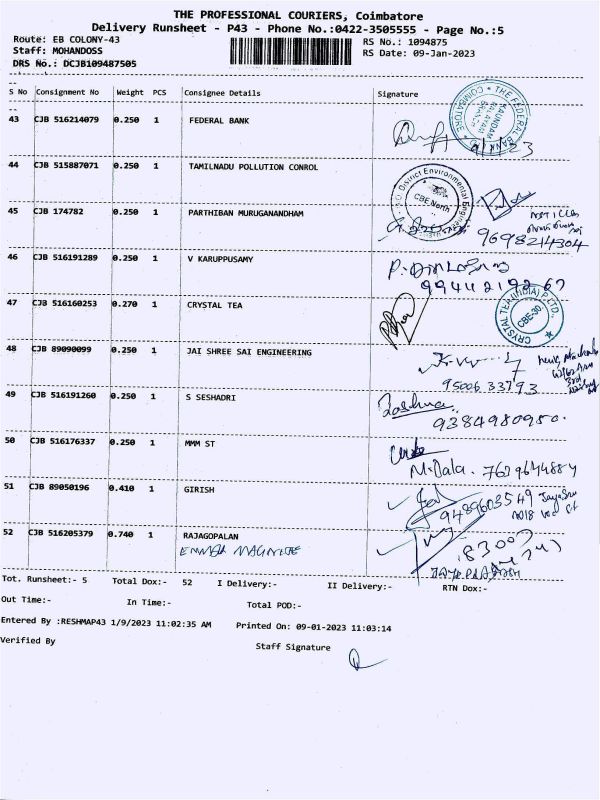 THE PROFESSIONAL COURIERS, Coimbatore
Delivery Runsheet - P43 - Phone No.:0422-3505555 - Page No.:5
Route: EB COLONY-43
Staff: MOHANDOSS
DRS No.: DCJB109487505
RS No.: 1094875
RS Date: 09-Jan-2023
S No Consignment No Weight PCS Consignee Details Signature
43 CJB 516214079 0.250 1 FEDERAL BANK
THE FEDERAL BANK
COIMBATORE
44 CJB 515887071 0.250 1 TAMILNADU POLLUTION CONROL
District Environmental Engineer
CBE.North
45 CJB 174782 0.250 1 PARTHIBAN MURUGANANDHAM
9698214304
46 CJB 516191289 0.250 1 V KARUPPUSAMY
9944219267
47 CJB 516160253 0.270 1 CRYSTAL TEA
CRYSTAL TEA (INDIA) P LTD.,
CBE-30.
48 CJB 89090099 0.250 1 JAI SHREE SAI ENGINEERING
9500633793
49 CJB 516191260 0.250 1 S SESHADRI
9384980950.
50 CJB 516176337 0.250 1 MMM ST
M.Bala. 7629644884
51 CJB 89050196 0.410 1 GIRISH
9489603549
52 CJB 516205379 0.740 1 RAJAGOPALAN
Tot. Runsheet:- 5 Total Dox:- 52 I Delivery:- II Delivery:- RTN Dox:-
Out Time:- In Time:- Total POD:-
Entered By :RESHMAP43 1/9/2023 11:02:35 AM Printed On: 09-01-2023 11:03:14
Verified By Staff Signature